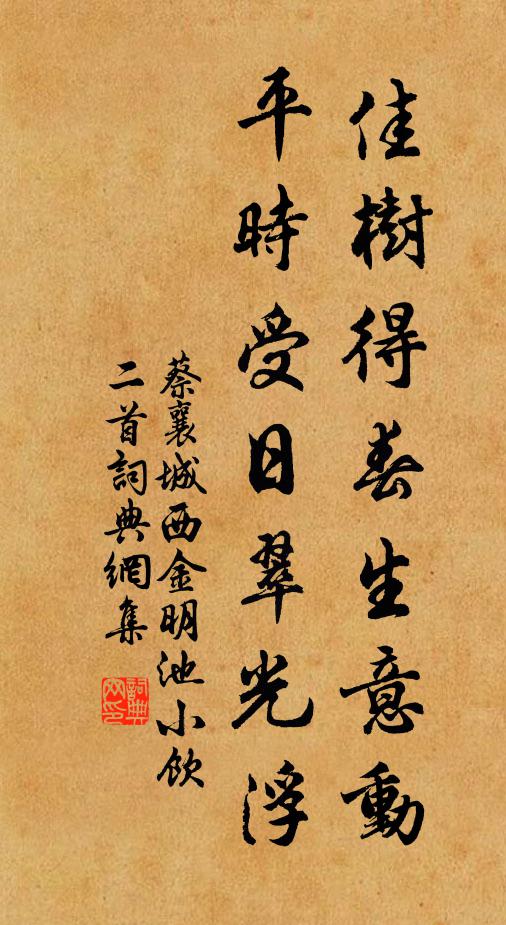 佳樹得春生意動
平時受日翠光浮
蔡襄城西金明池小飲
二首詞典網集
詞典網印